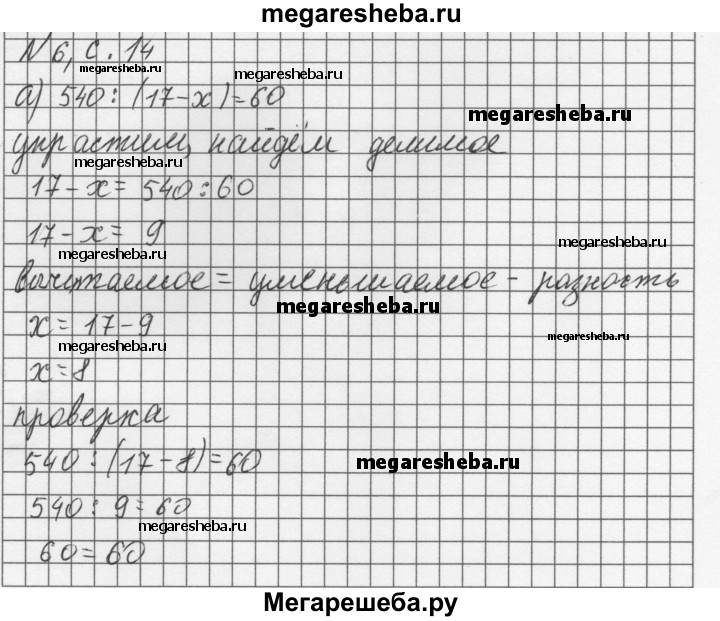 megaresheba.ru
N 6, с. 14
megaresheba.ru
megaresheba.ru
а) 540 : (17-х)=60
megaresheba.ru
упрастим, найдём делимое
megaresheba.ru
17-х= 540:60
17-х= 9
megaresheba.ru
megaresheba.ru
вычитаемое = уменьшаемое - разность
megaresheba.ru
х= 17-9
megaresheba.ru
megaresheba.ru
х=8
проверка
540 : (17-8)=60
megaresheba.ru
540 : 9=60
megaresheba.ru
60=60
Мегарешеба.ру